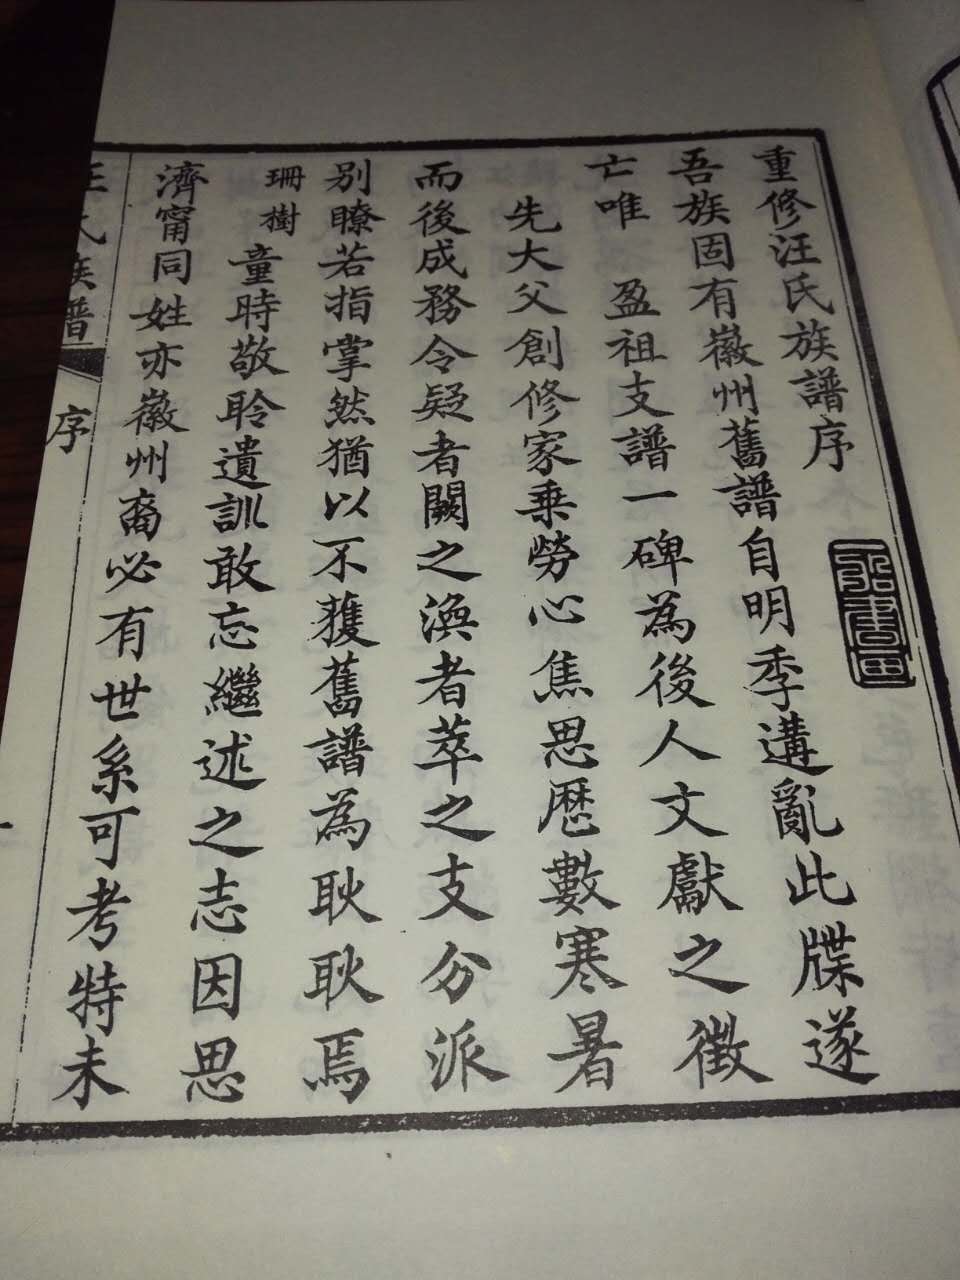 重修汪氏族譜序
吾族固有徽州舊譜自明季遘亂此牒遂
亡唯　盈祖支譜一碑為後人文獻之徵
先大父創修家乘勞心焦思歷數寒暑
而後成務令疑者闕之渙者萃之支分派
別瞭若指掌然猶以不獲舊譜為耿耿焉
珊樹童時敬聆遺訓敢忘繼述之志因思
濟甯同姓亦徽州裔必有世系可考特未
汪氏族譜
序